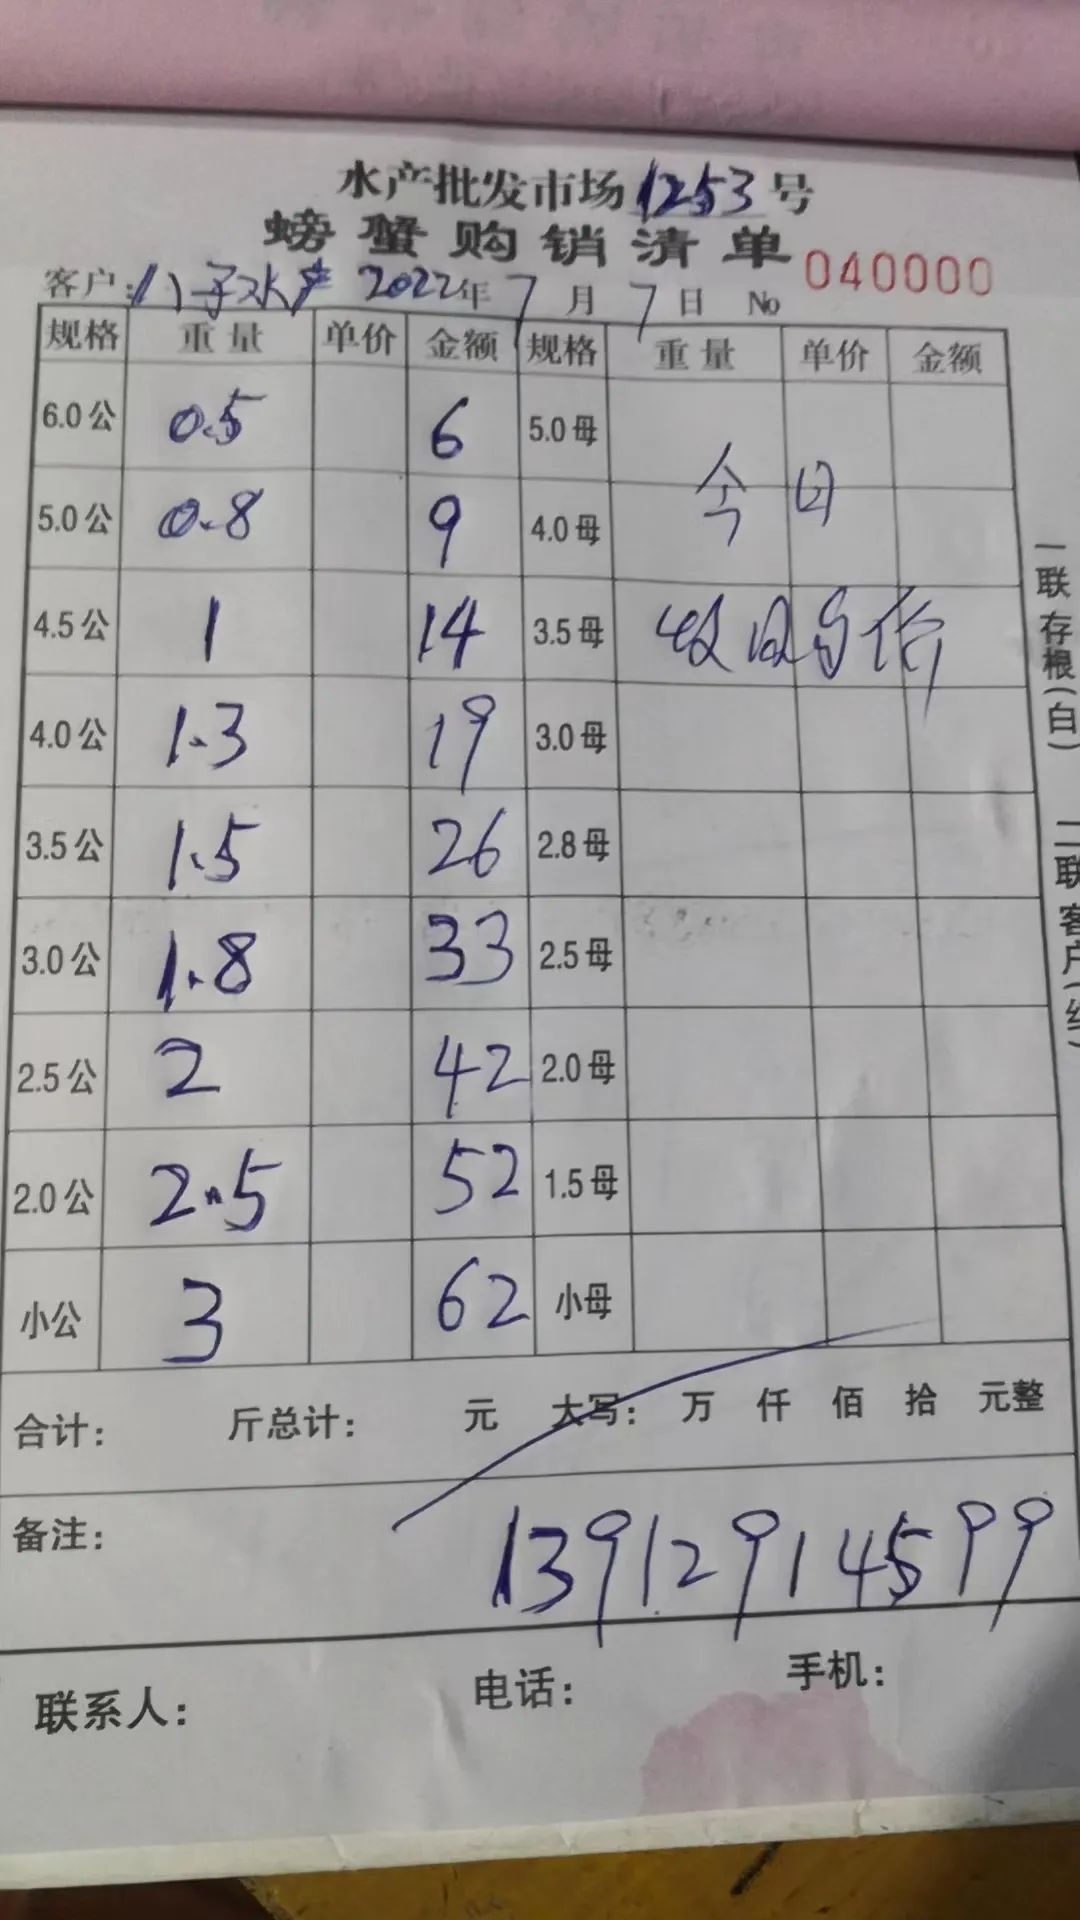 水产批发市场1253号
螃蟹购销清单 040000
客户:八子水产 2022年7月7日 No
规格 重量 单价 金额 规格 重量 单价 金额
6.0公 0.5 6 5.0母
5.0公 0.8 9 4.0母 今日
4.5公 1 14 3.5母 收 价
4.0公 1.3 19 3.0母
3.5公 1.5 26 2.8母
3.0公 1.8 33 2.5母
2.5公 2 42 2.0母
2.0公 2.5 52 1.5母
小公 3 62 小母
合计: 斤总计: 元 大写: 万 仟 佰 拾 元整
备注: 13912914599
联系人: 电话: 手机:
一联存根(白)
二联客户(红)